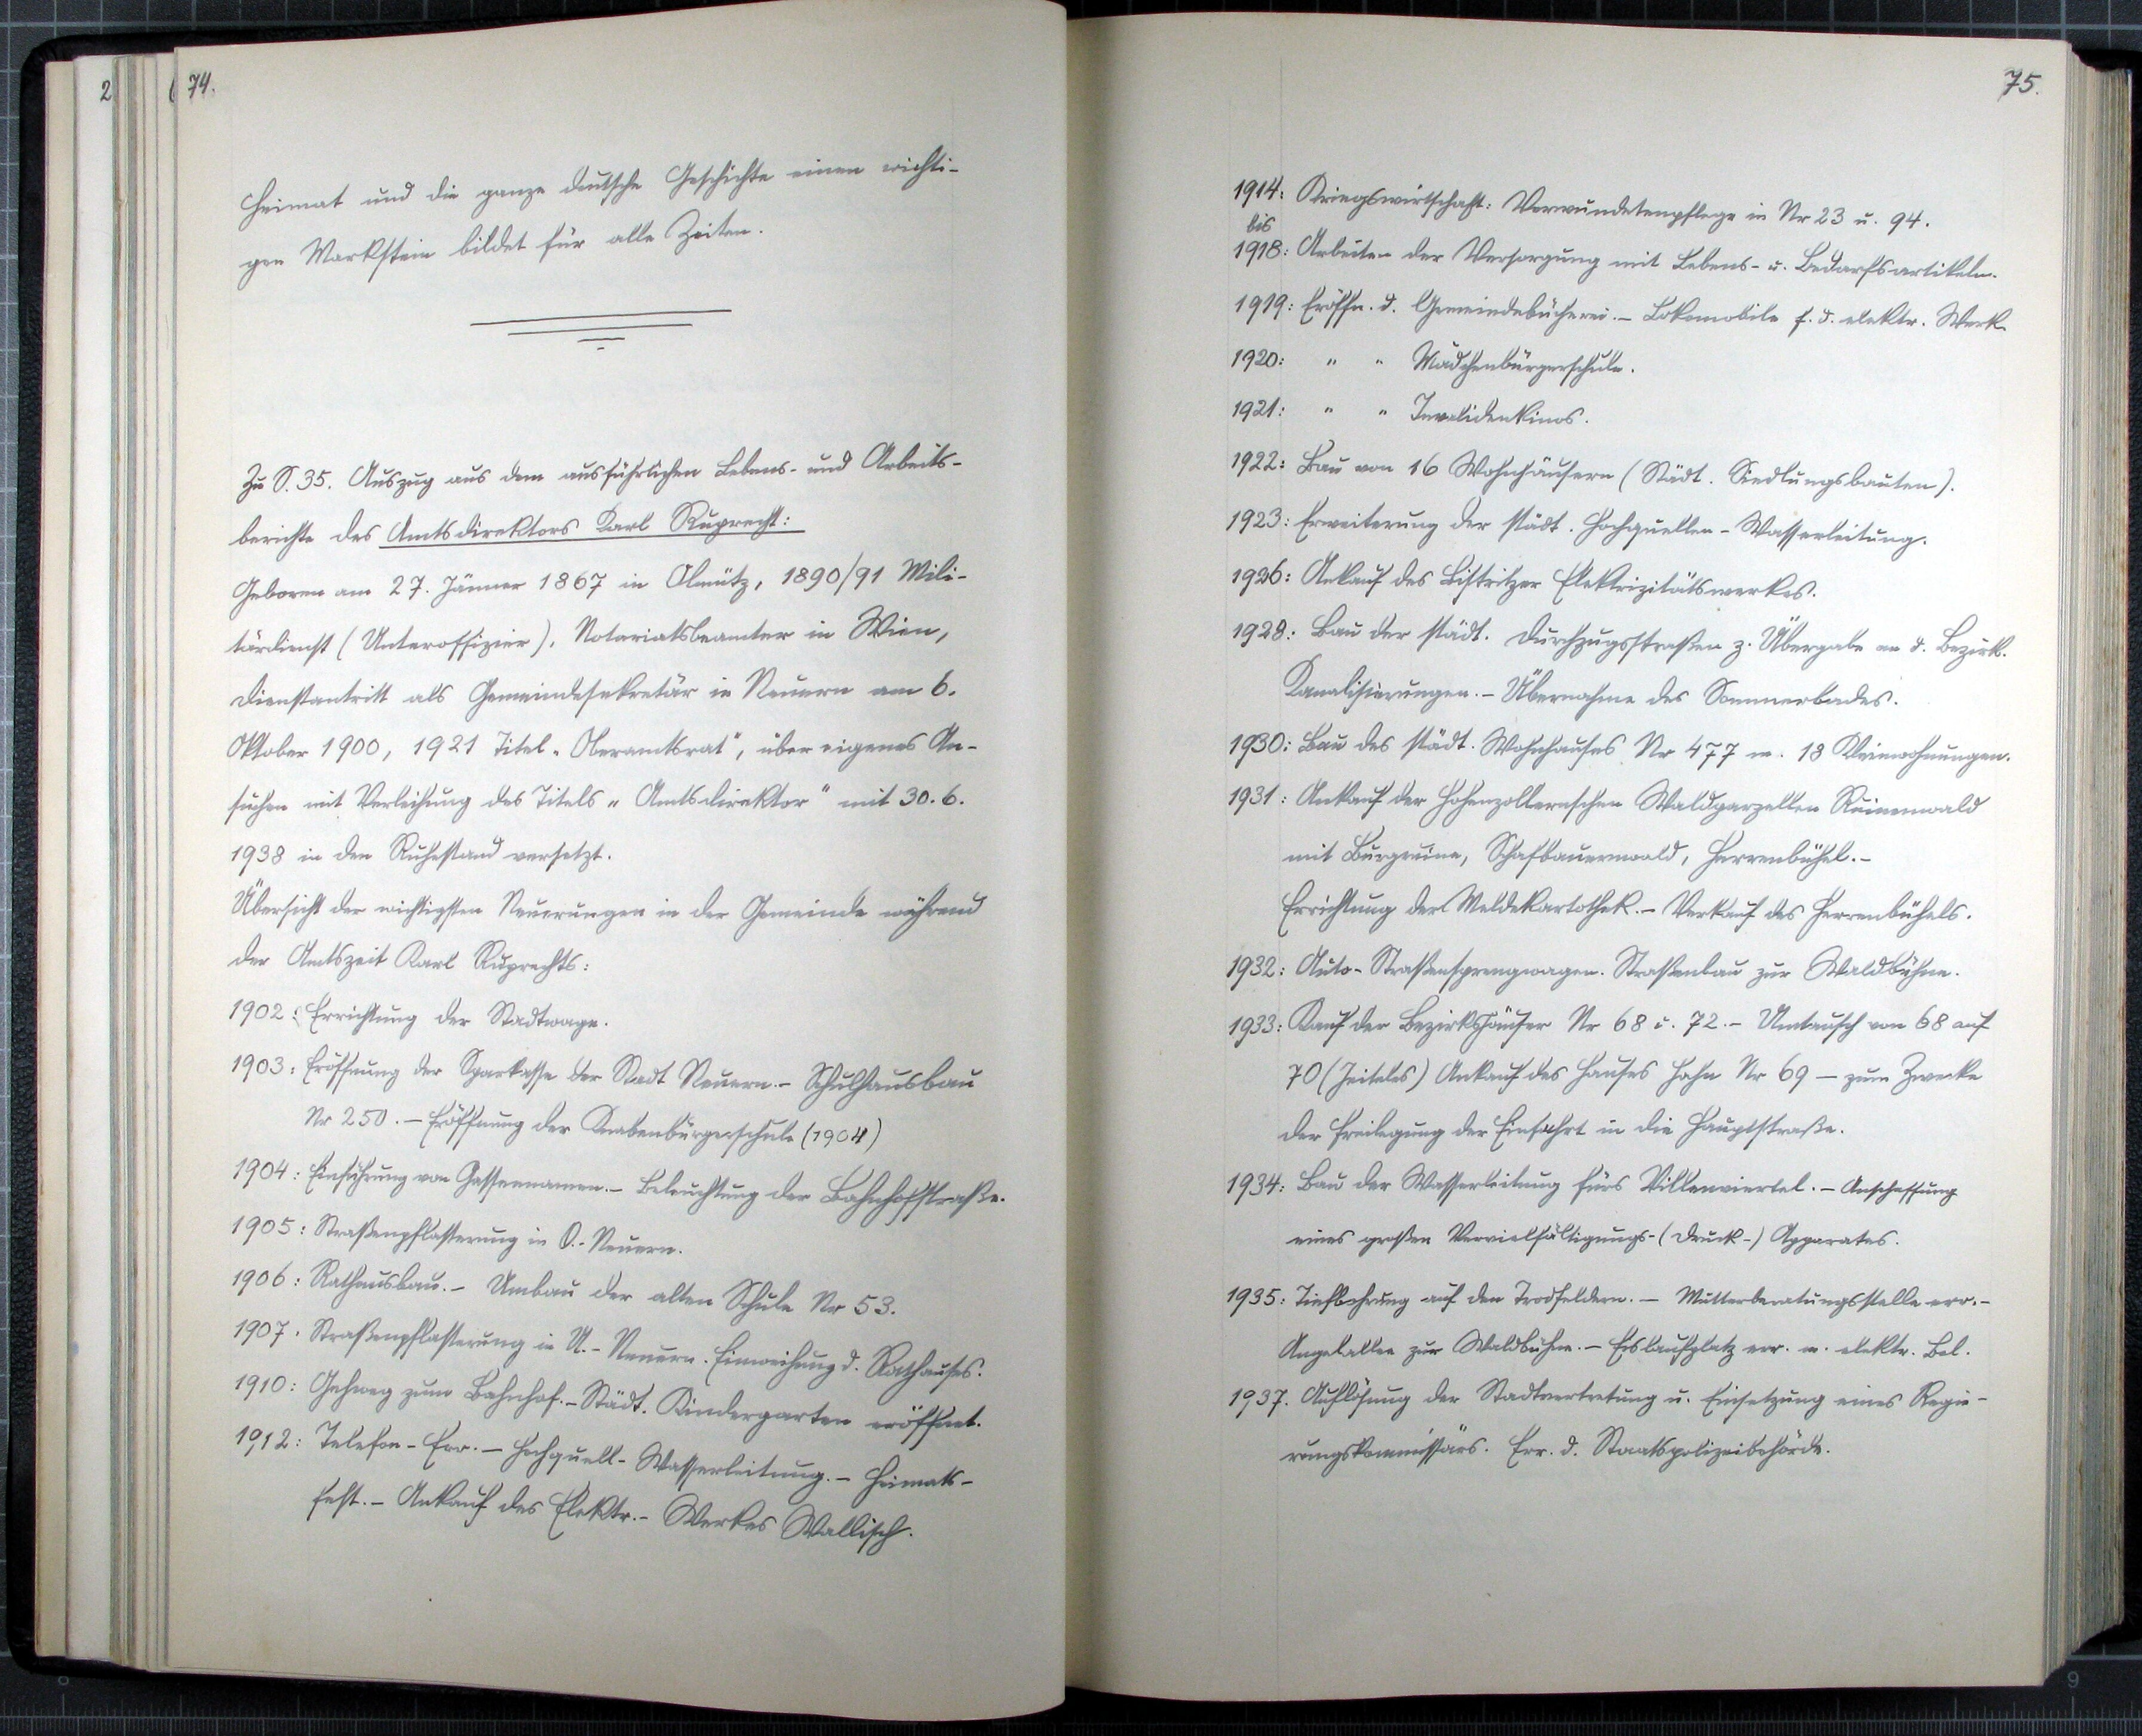 74.
Heimat und die ganze deutsche Geschichte einen wichti-
gen Markstein bildet für alle Zeiten.
Zu S. 35. Auszug aus dem ausführlichen Lebens- und Arbeits-
berichte des Amtsdirektors Karl Ruprecht:
Geboren am 27. Jänner 1867 in Olmütz, 1890/91 Mili-
tärdienst (Unteroffizier), Notariatsbeamter in Wien,
Dienstantritt als Gemeindesekretär in Neuern am 6.
Oktober 1900, 1921 Titel „Oberamtsrat", über eigenes An-
suchen mit Verleihung des Titels „Amtsdirektor" mit 30.6.
1938 in den Ruhestand versetzt.
Übersicht der wichtigsten Neuerungen in der Gemeinde während
der Amtszeit Karl Ruprechts:
1902: Errichtung der Stadtwage.
1903: Eröffnung der Sparkasse der Stadt Neuern. - Schulhausbau
Nr 250. - Eröffnung der Knabenbürgerschule (1904)
1904: Einführung von Gassennamen. - Beleuchtung der Bahnhofstraße.
1905: Straßenpflasterung in O.-Neuern.
1906: Rathausbau. - Umbau der alten Schule Nr 53.
1907. Straßenpflasterung in U.-Neuern. Einweihung d. Rathauses.
1910: Gehweg zum Bahnhof. - Städt. Kindergarten eröffnet.
1912: Telefon-Err. - Hochquell-Wasserleitung. - Heimats-
fest. - Ankauf des Elektr.-Werkes Wallisch.
75.
1914: Kriegswirtschaft: Verwundetenpflege in Nr 23 u. 94.
bis
1918: Arbeiten der Versorgung mit Lebens- u. Bedarfsartikeln.
1919: Eröffn. d. Gemeindebücherei. - Lokomobile f. d. elektr. Werk
1920: " " Mädchenbürgerschule.
1921: " " Invalidenkinos.
1922: Bau von 16 Wohnhäusern (Städt. Siedlungsbauten).
1923: Erweiterung der städt. Hochquellen-Wasserleitung.
1926: Ankauf des Bistritzer Elektrizitätswerkes.
1928: Bau der städt. Durchzugsstraßen z. Übergabe an d. Bezirk.
Kanalisierungen. - Übernahme des Sommerbades.
1930: Bau des städt. Wohnhauses Nr 477 m. 18 Kleinwohnungen.
1931: Ankauf der Hohenzollernschen Waldparzellen Ruinenwald
mit Burgruine, Schafbauernwald, Herrenbühel. -
Errichtung der Meldekartothek. - Verkauf des Herrenbühels.
1932: Auto-Straßensprengwagen. Straßenbau zur Waldbühne.
1933: Kauf der Bezirkshäuser Nr 68 u. 72. - Umtausch von 68 auf
70 (Jeiteles) Ankauf des Hauses Hahn Nr 69 - zum Zwecke
der Freilegung der Einfahrt in die Hauptstraße.
1934: Bau der Wasserleitung fürs Villenviertel. - Anschaffung
eines großen Vervielfältigungs-(Druck-) Apparates.
1935: Tiefbohrung auf den Trodfeldern. - Mutterberatungsstelle err. -
Angelallee zur Waldbühne. - Eislaufplatz err. m. elektr. Bel.
1937. Auflösung der Stadtvertretung u. Einsetzung eines Regie-
rungskommissärs. Err. d. Staatspolizeibehörde.